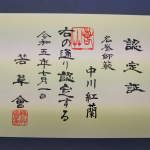 認定証
名誉師範
中川紅蘭
右の通り認定する
令和五年七月一日
若草會